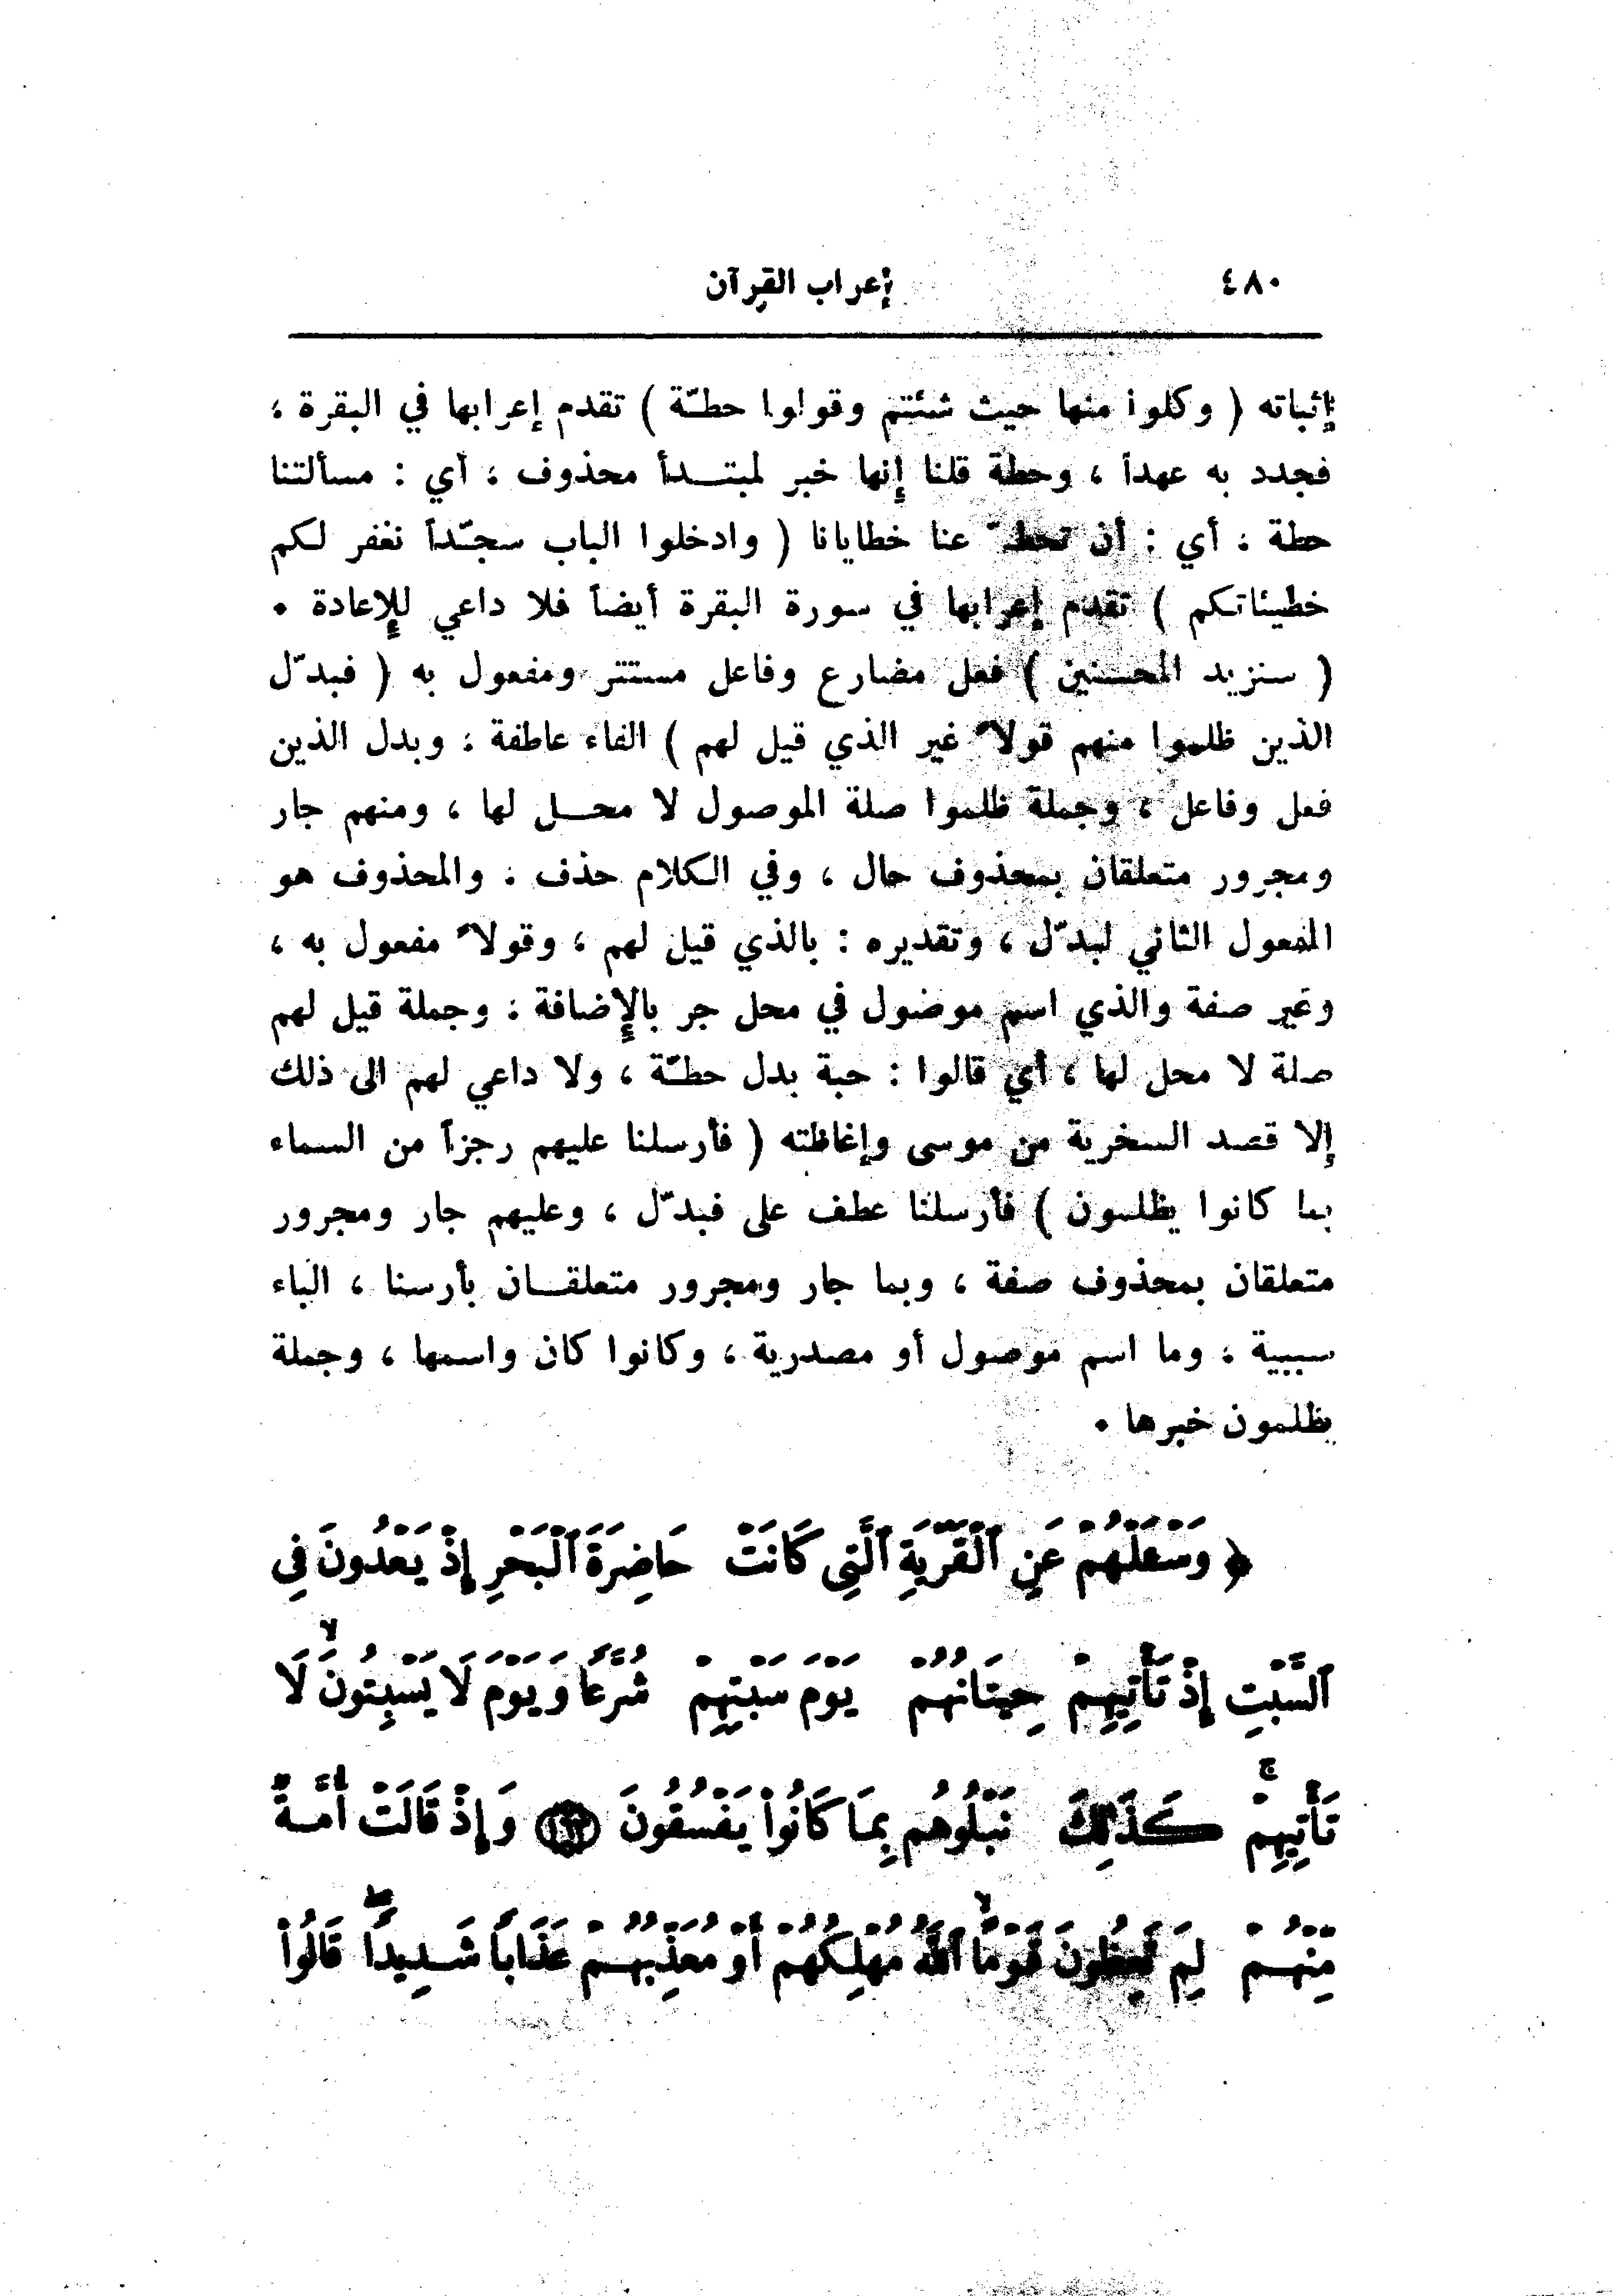 ٤٨٠ إعراب القرآن
إثباته ( وكلوا منها حيث شئتم وقولوا حطّة ) تقدم إعرابها في البقرة ،
فجدد به عهداً ، وحطة قلنا إنها خبر لمبتدأ محذوف ، أي : مسألتنا
حطة ، أي : أن تحطّ عنا خطايانا ( وادخلوا الباب سجّداً نغفر لكم
خطيئاتكم ) تقدم إعرابها في سورة البقرة أيضاً فلا داعي للإعادة .
( سنزيد المحسنين ) فعل مضارع وفاعل مستتر ومفعول به ( فبدّل
الذين ظلموا منهم قولاً غير الذي قيل لهم ) الفاء عاطفة ، وبدل الذين
فعل وفاعل ، وجملة ظلموا صلة الموصول لا محل لها ، ومنهم جار
ومجرور متعلقان بمحذوف حال ، وفي الكلام حذف ، والمحذوف هو
المفعول الثاني لبدّل ، وتقديره : بالذي قيل لهم ، وقولاً مفعول به ،
وغير صفة والذي اسم موضول في محل جر بالإضافة ، وجملة قيل لهم
صلة لا محل لها ، أي قالوا : حبة بدل حطّة ، ولا داعي لهم الى ذلك
إلا قصد السخرية من موسى وإغاظته ( فأرسلنا عليهم رجزاً من السماء
بما كانوا يظلمون ) فأرسلنا عطف على فبدّل ، وعليهم جار ومجرور
متعلقان بمحذوف صفة ، وبما جار ومجرور متعلقان بأرسنا ، الباء
سببية ، وما اسم موصول أو مصدرية ، وكانوا كان واسمها ، وجملة
يظلمون خبرها .
﴿ وَسْـَٔلْهُمْ عَنِ ٱلْقَرْيَةِ ٱلَّتِى كَانَتْ حَاضِرَةَ ٱلْبَحْرِ إِذْ يَعْدُونَ فِى
ٱلسَّبْتِ إِذْ تَأْتِيهِمْ حِيتَانُهُمْ يَوْمَ سَبْتِهِمْ شُرَّعًا وَيَوْمَ لَا يَسْبِتُونَ ۙ لَا
تَأْتِيهِمْ ۚ كَذَٰلِكَ نَبْلُوهُم بِمَا كَانُوا۟ يَفْسُقُونَ ﴿١٦٣﴾ وَإِذْ قَالَتْ أُمَّةٌ
مِّنْهُمْ لِمَ تَعِظُونَ قَوْمًا ۙ ٱللَّهُ مُهْلِكُهُمْ أَوْ مُعَذِّبُهُمْ عَذَابًا شَدِيدًا ۖ قَالُوا۟